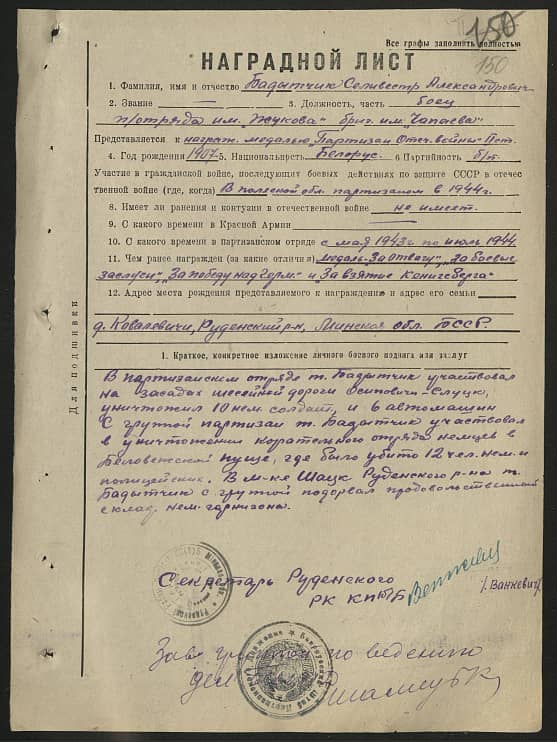 150
Все графы заполнить полностью
150
НАГРАДНОЙ ЛИСТ
1. Фамилия, имя и отчество Бадытчик Селивестр Александрович
2. Звание — 3. Должность, часть боец
п/отряда им. "Жукова" бриг. им. "Чапаева"
Представляется к награж. медалью "Партизан Отеч. войны" Iст.
4. Год рождения 1907 5. Национальность Белорус. 6 Партийность б/п.
Участие в гражданской войне, последующих боевых действиях по защите СССР в отечественной
ственной войне (где, когда) В полесской обл. партизаном в 1944г.
8. Имеет ли ранения и контузии в отечественной войне не имеет.
9. С какого времени в Красной Армии
10. С какого времени в партизанском отряде с мая 1943г по июль 1944
11. Чем ранее награжден (за какие отличия) медаль "За Отвагу" "За боевые
заслуги" "За победу над Герм" и "За взятие Кенигсберга"
12. Адрес места рождения представляемого к награждению и адрес его семьи
д. Ковалевичи, Руденский р-н, Минская обл. БССР.
Для подшивки
1. Краткое, конкретное изложение личного боевого подвига или заслуг
В партизанском отряде т. Бадытчик участвовал
на засадах шоссейной дороги Осиповичи-Слуцк,
уничтожил 10 нем. солдат, и 6 автомашин
С группой партизан т. Бадытчик участвовал
в уничтожении карательного отряда немцев в
Беловежской пуще, где было убито 12 чел. нем. и
полицейских. В м-ке Шацк Руденского р-на т.
Бадытчик с группой подорвал продовольственный
склад нем. гарнизона.
Секретарь Руденского
РК КП(б)Б
/. Ванкевич/
Зав.